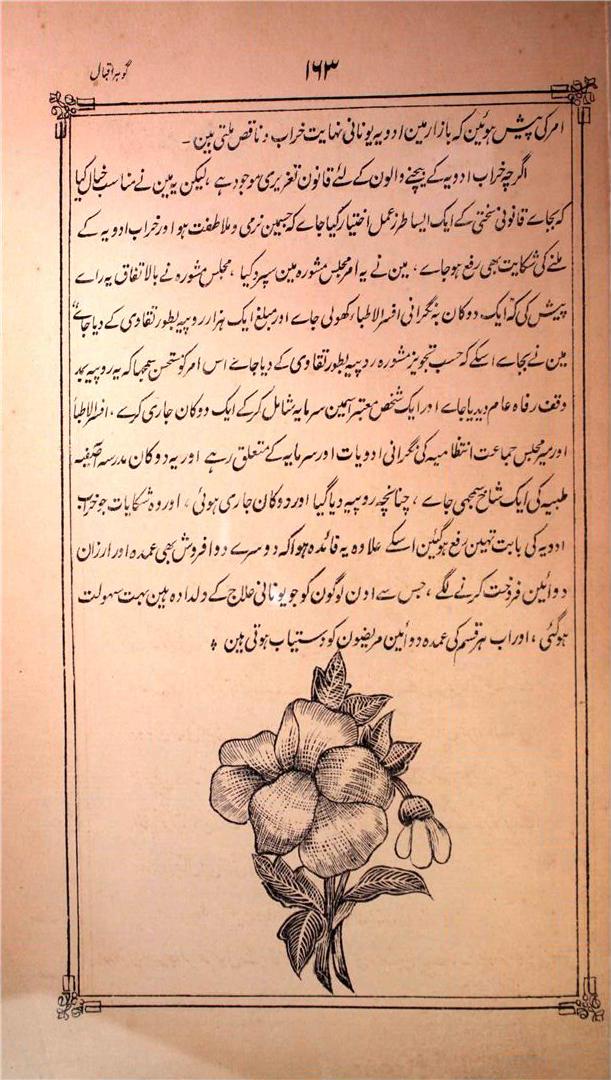 گوہر اقبال
۱۶۳
امر کی پیش ہوئین کہ بازار مین ادویہ یونانی نہایت خراب و ناقص ملتی ہین ۔
اگرچہ خراب ادویہ کے بیچنے والون کے لئے قانون تعزیری موجود ہے ، لیکن یہ مین نے مناسب خیال کیا
کہ بجاے قانونی سختی کے ایک ایسا طرز عمل اختیار کیا جاے کہ جسمین نرمی و ملاطفت ہو اور خراب ادویہ کے
ملنے کی شکایت بھی رفع ہوجاے ، مین نے یہ امر مجلس مشورہ مین سپرد کیا ، مجلس مشورہ نے بالاتفاق یہ راے
پیش کی کہ ایک دوکان بہ نگرانی افسر الاطبا رکھولی جاے اور مبلغ ایک ہزار روپیہ بطور تقاوی کے دیا جائے
مین نے بجاے اسکے کہ حسب تجویز مشورہ روپیہ بطور تقاوی کے دیا جائے اس امر کو مستحسن سمجھا کہ یہ روپیہ بمد
وقف رفاہ عام دیدیا جاے اور ایک شخص معتبر اسمین سرمایہ شامل کرکے ایک دوکان جاری کرے ، افسر الاطبا
اور میر مجلس جماعت انتظامیہ کی نگرانی ادویات اور سرمایہ کے متعلق رہے اور یہ دوکان مدرسہ آصفیہ
طبیہ کی ایک شاخ سمجھی جاے ، چنانچہ روپیہ دیا گیا اور دوکان جاری ہوئی ، اور وہ شکایات جو خراب
ادویہ کی بابت تہین رفع ہوگئین اسکے علاوہ یہ فائدہ ہوا کہ دوسرے دوا فروش بھی عمدہ اور ارزان
دوائین فروخت کرنے لگے ، جس سے اون لوگون کو جو یونانی علاج کے دلدادہ ہین بہت سہولت
ہوگئی ، اور اب ہر قسم کی عمدہ دوائین مریضون کو دستیاب ہوتی ہین ۔